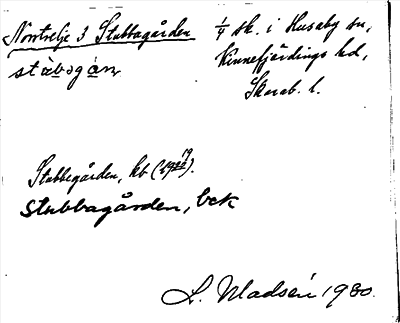 Norrtelje 3 Stubbagården
1/4 sk. i Husaby sn,
Kinnefjärdings hd,
Skarab. l.
stùbogàn
Stubbegården, kb (19).
Stubbagården, bek
L. Madsén 1930.